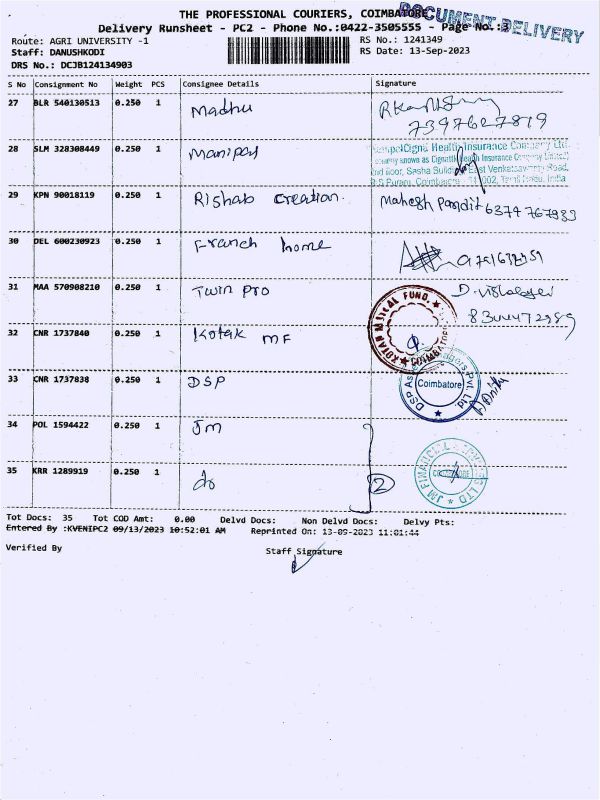 THE PROFESSIONAL COURIERS, COIMBATORE
DOCUMENT DELIVERY
Delivery Runsheet - PC2 - Phone No.:0422-3505555 - Page No.:3
Route: AGRI UNIVERSITY -1 RS No.: 1241349
Staff: DANUSHKODI RS Date: 13-Sep-2023
DRS No.: DCJB124134903
S No Consignment No Weight PCS Consignee Details Signature
27 BLR 540130513 0.250 1 Madhu
7397627819
28 SLM 328308449 0.250 1 Manipal
Cigna Health Insurance Company Ltd.
Health Insurance Company Limited)
East Venkatasamy Road,
R S Puram, Coimbatore Tamil Nadu, India
29 KPN 90018119 0.250 1 Rishab Creation. Mahesh Pandit
30 DEL 600230923 0.250 1 Franch home
31 MAA 570908210 0.250 1 Twin Pro
32 CNR 1737840 0.250 1 Kotak MF
FUND. COIMBATORE
33 CNR 1737838 0.250 1 DSP
DSP Pvt. Ltd Coimbatore
34 POL 1594422 0.250 1 Jm
35 KRR 1289919 0.250 1 do 2
JM FINANCIAL SERVICES LTD
Tot Docs: 35 Tot COD Amt: 0.00 Delvd Docs: Non Delvd Docs: Delvy Pts:
Entered By :KVENIPC2 09/13/2023 10:52:01 AM Reprinted On: 13-09-2023 11:01:44
Verified By Staff Signature